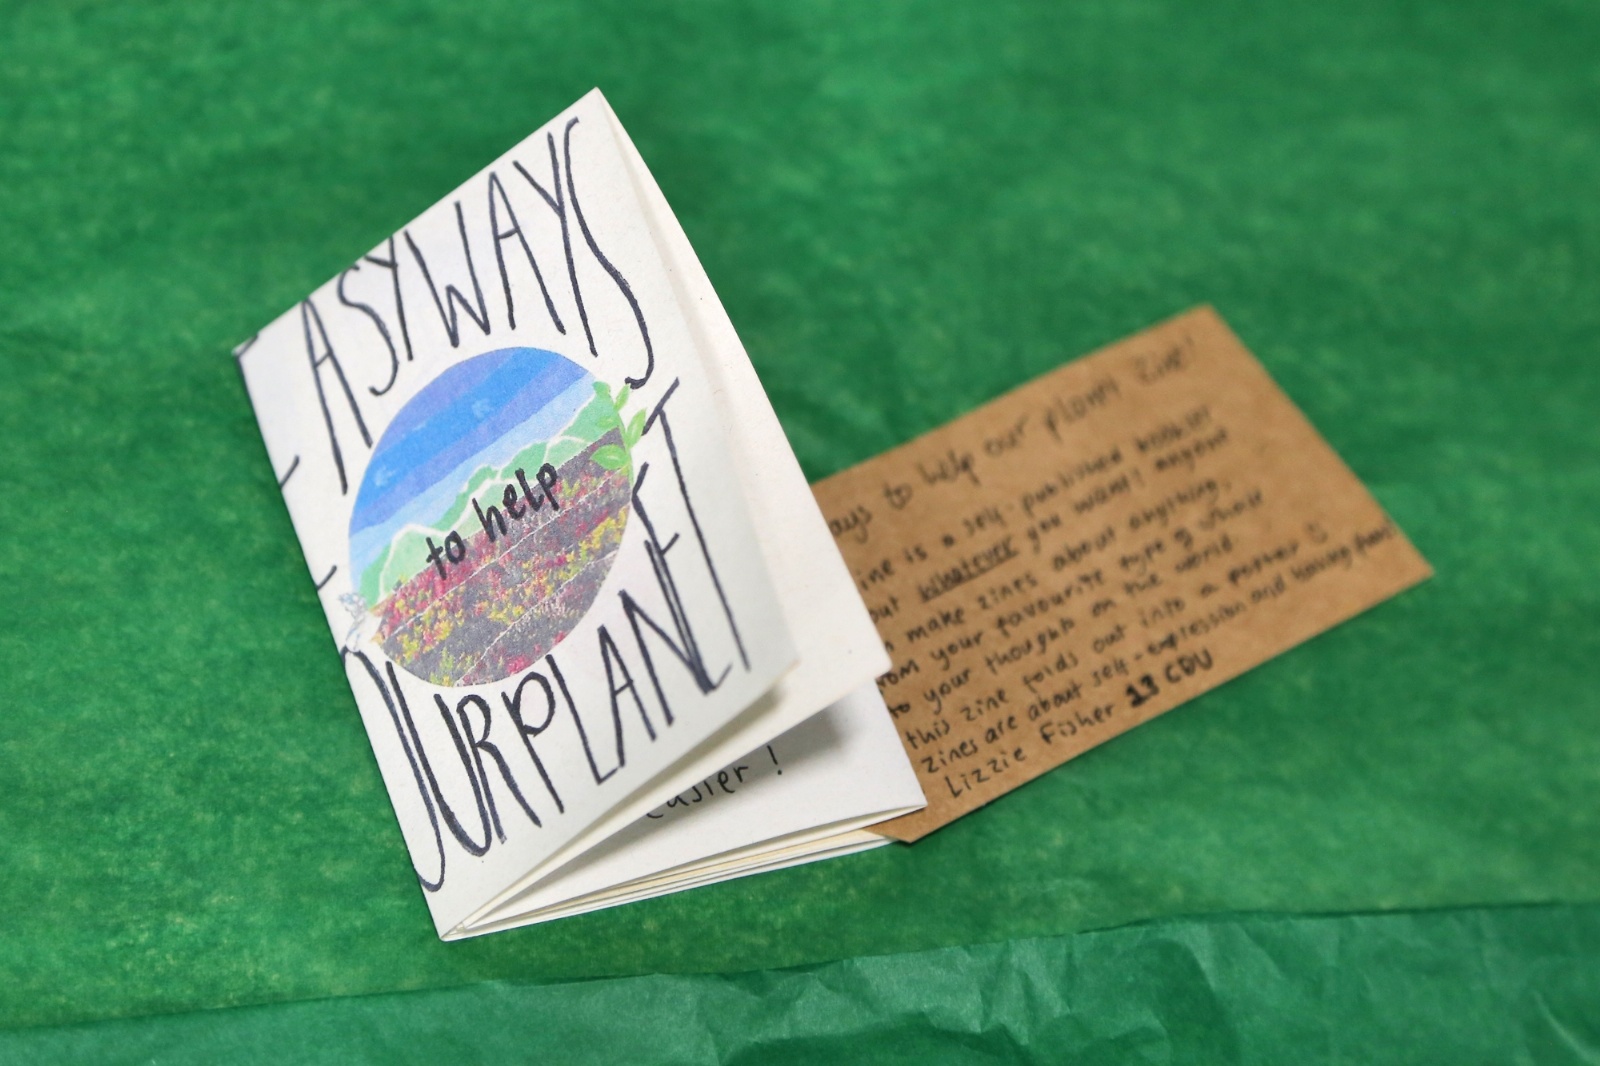 EASYWAYS
to help
OURPLANET
easier!
ays to help our planet zine!
ine is a self-published booklet
out whatever you want! anyone
n make zines about anything,
rom your favourite type of
to your thoughts on the world
this zine folds out into a poster
zines are about self-expression and having fun!
Lizzie Fisher 13 CDU